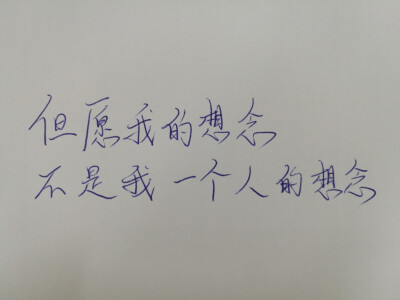 但愿我的想念
不是我一个人的想念